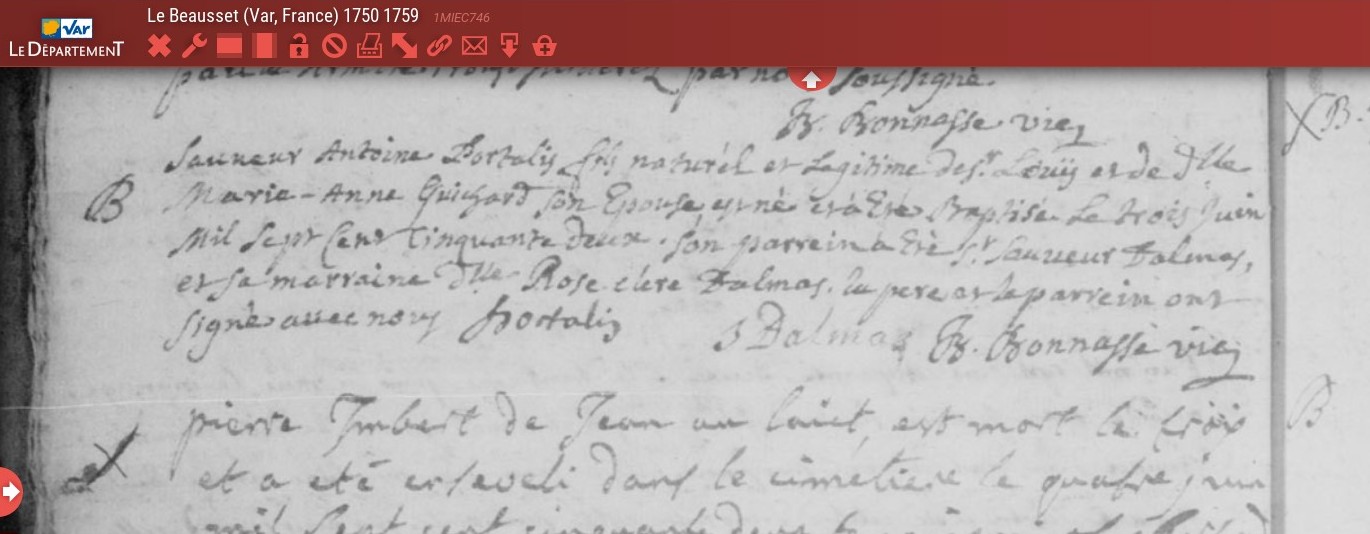 Le Beausset (Var, France) 1750 1759 1MIEC746
VAR
LE DÉPARTEMENT
par nous soussigné.
B. Bonnasse vic
Sauveur Antoine Portalis fils naturél et Legitime de sr. Loüis et de dlle
B
Marie-Anne Guichard son Epouse est né et a Eté Baptisé Le trois Juin
Mil Sept Cent Cinquante deux. son parrein a Eté sr. Sauveur Dalmas,
et sa marraine dlle Rose clere Dalmas. le pere et le parrein ont
signé avec nous Portalis S Dalmas B. Bonnassé vic
pierre Imbert de Jean au lait, est mort le trois
et a eté enseveli dans le cimetiere le quatre juin
mil sept cent cinquante deux
X B.
B